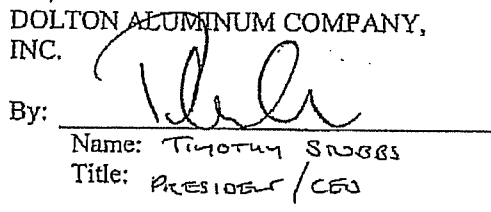 DOLTON ALUMINUM COMPANY,
INC.
By:
Name: TIMOTHY STUBBS
Title: PRESIDENT / CEO